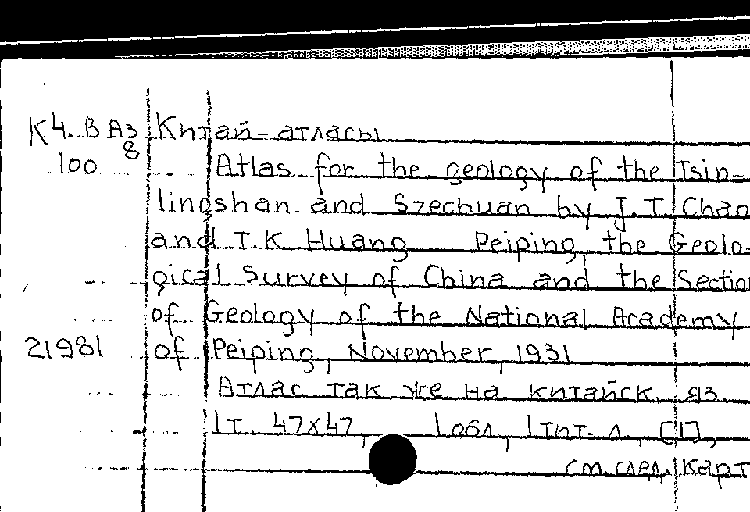 К4. В Аз Китай-атласы
8
100 Atlas for the geology of the Tsin-
lingshan and Szechuan by J.T. Chao
and T.K Huang Peiping, the Geolo-
gical Survey of China and the Section
of Geology of the National Academy
21981 of Peiping, November, 1931
Атлас так же на китайск. яз.
1т. 47x47, 1обл, 1тит. л., [1],
см. след. карт